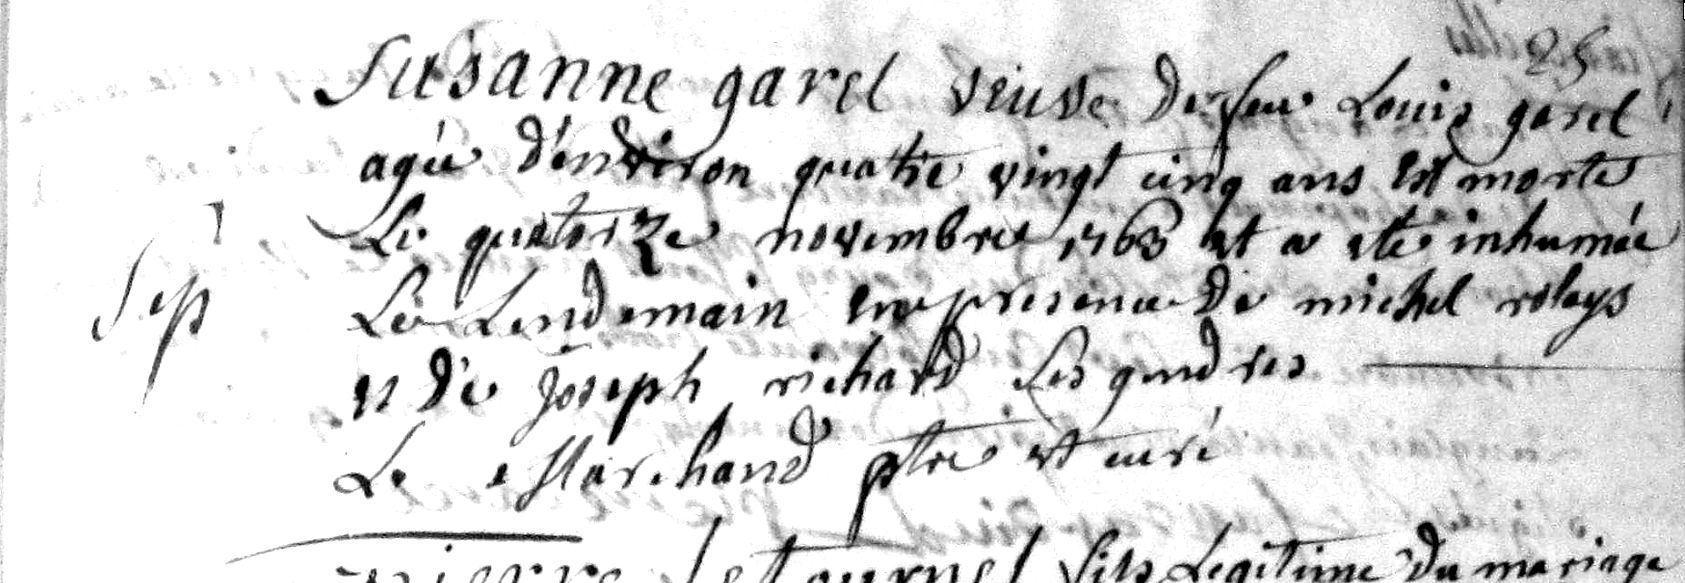 25
Susanne garel veuve de feu Louis garel
agée d'environ quatre vingt cinq ans est morte
Le quatorze novembre 1763 et a eté inhumée
Sep
Le Lendemain en presence de michel rolays
et de Joseph richard ses gendres
Le Marchand ptre et curé
pierre Letournel fils Legitime du mariage